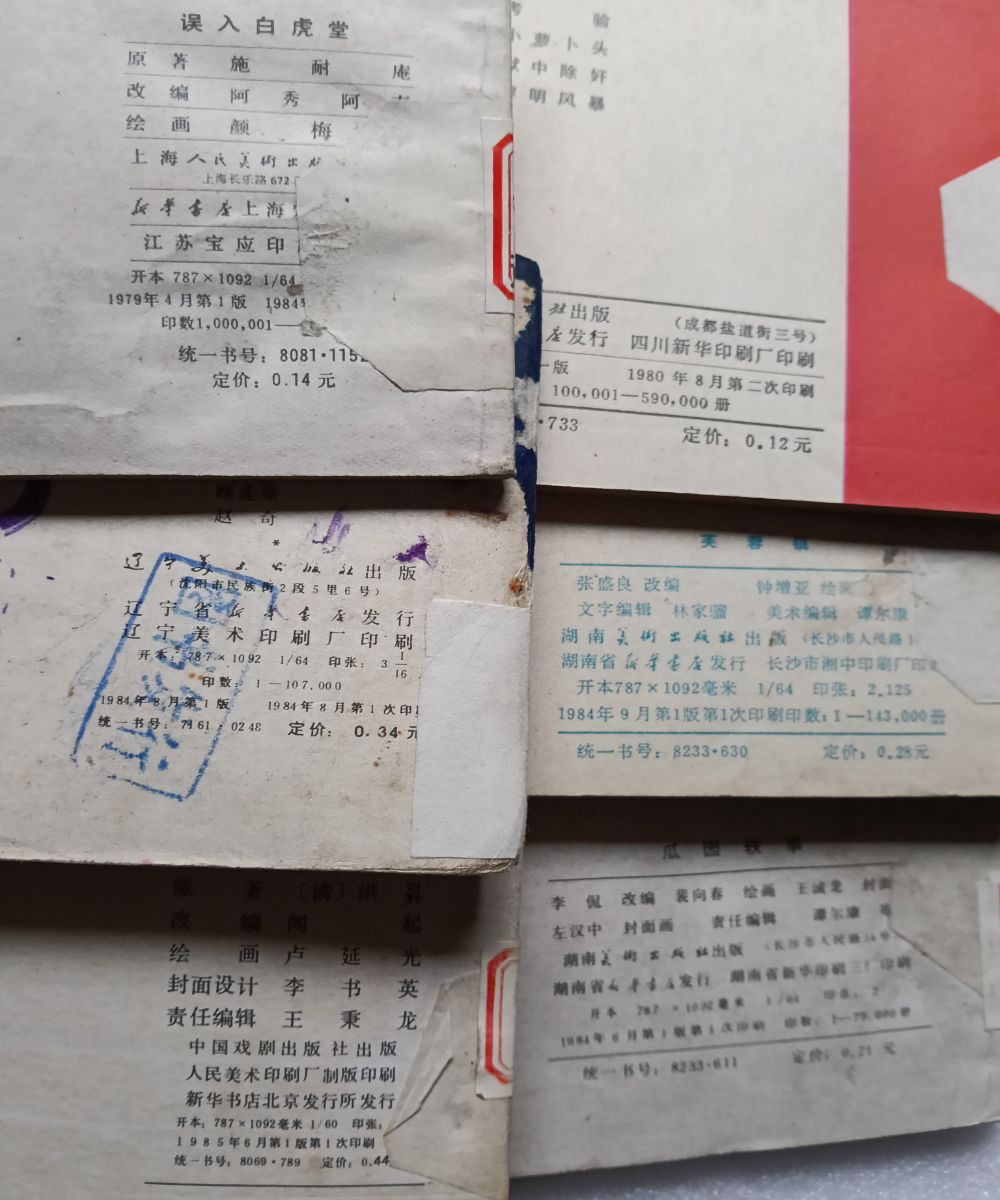 误入白虎堂
原著 施耐庵
改编 阿秀 阿
绘画 颜梅
上海人民美術出版
上海长乐路672
新华书店上海
江苏宝应印
开本 787×1092 1/64
1979年4月第1版 1984
印数1,000,001—
统一书号：8081·115
定价：0.14元
验
小萝卜头
中除奸
明风暴
社出版 （成都盐道街三号）
店发行 四川新华印刷厂印刷
一版 1980年8月第二次印刷
100,001—590,000册
·733 定价：0.12元
赵奇
*
辽宁美术出版社出版
（沈阳市民族街2段5里6号）
辽宁省新华书店发行
辽宁美术印刷厂印刷
开本：787×1092 1/64 印张：3 1/16
印数：1—107,000
1984年8月第1版 1984年8月第1次印
统一书号：7161·0248 定价：0.34元
芙蓉镇
张盛良 改编 钟增亚 绘画
文字编辑 林家骝 美术编辑 谭尔康
湖南美術出版社出版（长沙市人民路1
湖南省新華書店发行 长沙市湘中印刷厂印
开本787×1092毫米 1/64 印张：2.125
1984年9月第1版第1次印刷印数：1—143,000册
统一书号：8233·630 定价：0.28元
原著 〔清〕洪昇
改编 闻起
绘画 卢延光
封面设计 李书英
责任编辑 王秉龙
中国戏剧出版社出版
人民美术印刷厂制版印刷
新华书店北京发行所发行
开本：787×1092毫米 1/60 印张：
1985年6月第1版第1次印刷
统一书号：8069·789 定价：0.44
瓜园轶事
李侃 改编 裴向春 绘画 王诚龙 封面
左汉中 封面画 责任编辑 谭尔康
湖南美術出版社出版（长沙市人民路14号
湖南省新華書店发行 湖南省新华印刷三厂印刷
开本 787×1092毫米 1/64 印张：2
1984年6月第1版第1次印刷 印数：1—79,000册
统一书号：8233·611 定价：0.21元